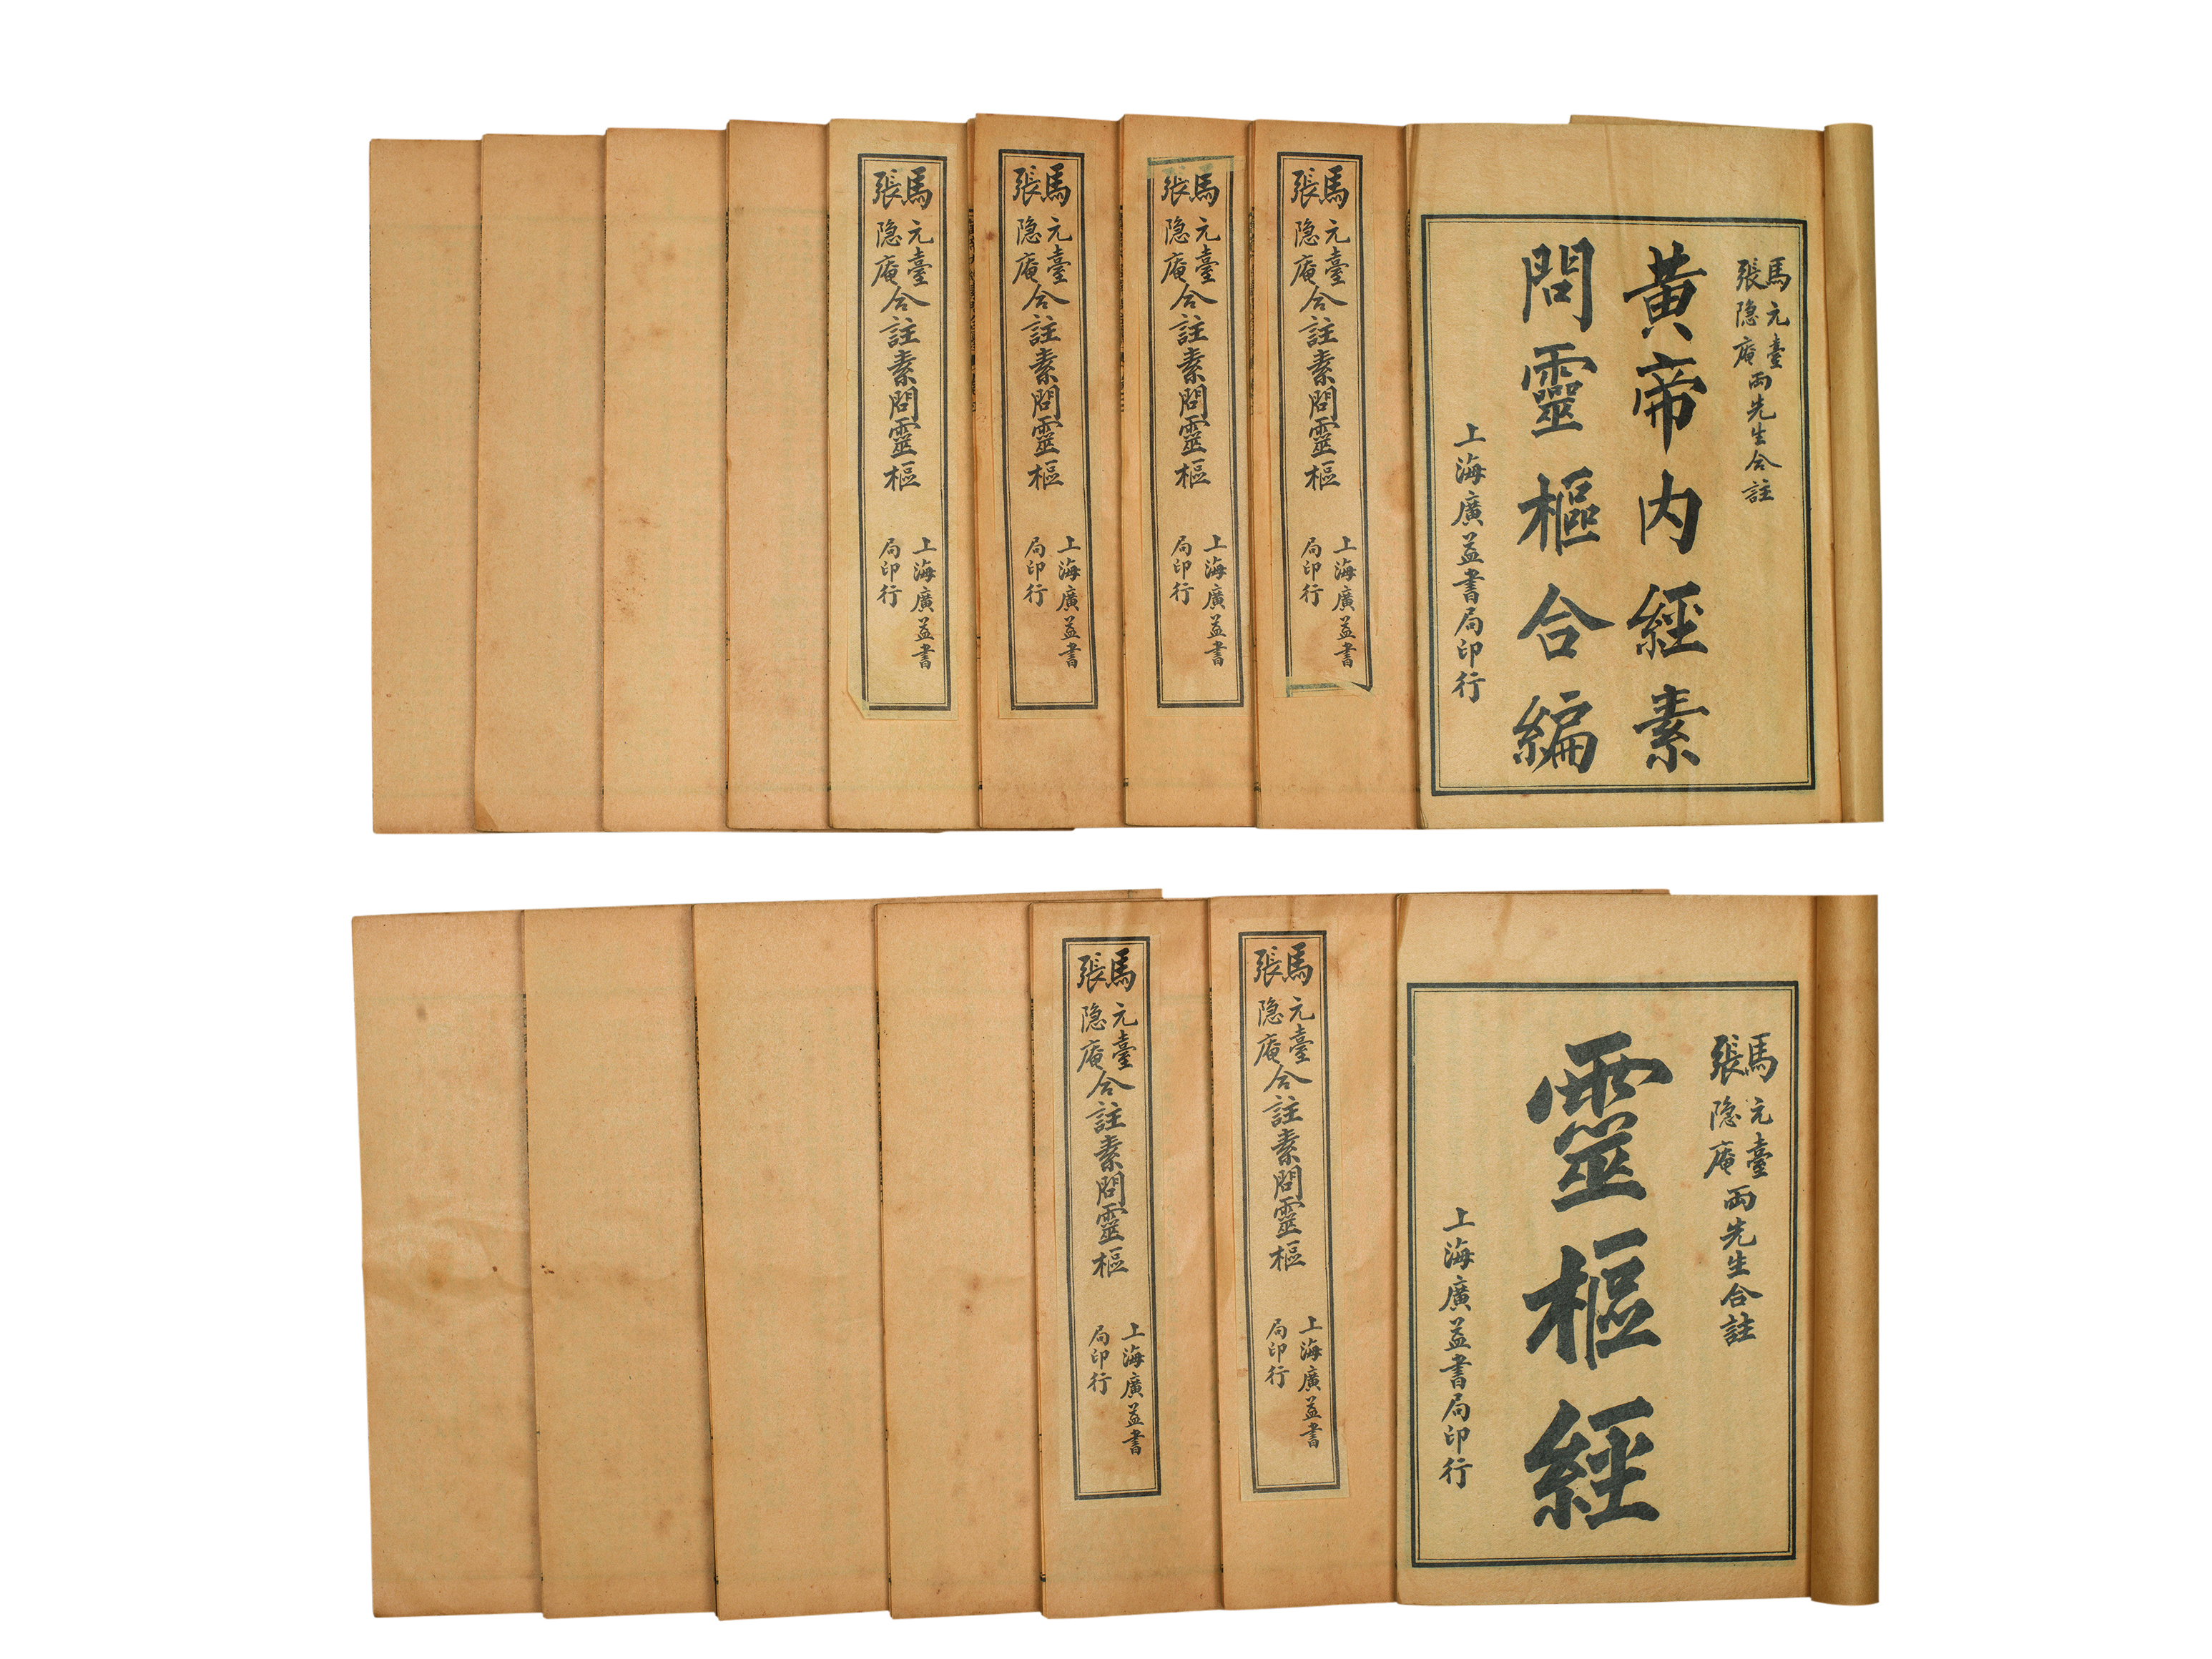 馬元臺
張隐庵
兩先生合註
黄帝内經素
問靈樞合編
上海廣益書局印行
馬元臺
張隐庵
合註素問靈樞
上海廣益書
局印行
馬元臺
張隐庵
合註素問靈樞
上海廣益書
局印行
馬元臺
張隐庵
合註素問靈樞
上海廣益書
局印行
馬元臺
張隐庵
合註素問靈樞
上海廣益書
局印行
馬元臺
張隐庵
兩先生合註
靈樞經
上海廣益書局印行
馬元臺
張隐庵
合註素問靈樞
上海廣益書
局印行
馬元臺
張隐庵
合註素問靈樞
上海廣益書
局印行